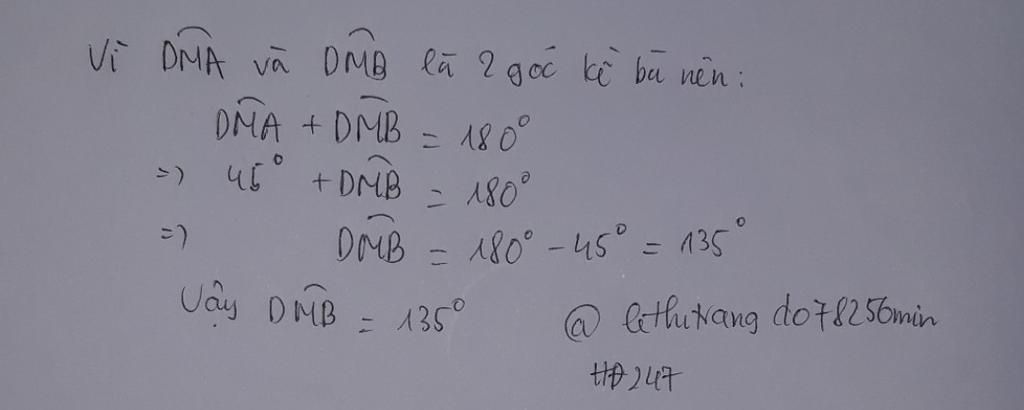 Vì DMA và DMB là 2 góc kề bù nên:
DMA + DMB = 180°
=> 45° + DMB = 180°
=> DMB = 180° - 45° = 135°
Vậy DMB = 135°
@ lethutrang do78256min
HĐ247